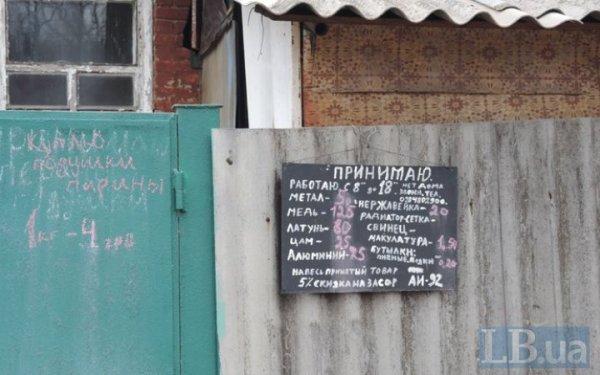 куплю
подушки
перины
1кг - 4 грн
ПРИНИМАЮ
РАБОТАЮ С 8°° ДО 18°° НЕТ ДОМА
ЗВОНИ. ТЕЛ.
МЕТАЛ-
НЕРЖАВЕЙКА- 20
МЕДЬ- 125
РАДИАТОР-СЕТКА-
ЛАТУНЬ- 80
СВИНЕЦ-
ЦАМ- 25
МАКУЛАТУРА- 1,50
АЛЮМИНИЙ- 25
БУТЫЛКИ:
0,20
НА ВЕСЬ ПРИНЯТЫЙ ТОВАР
5% СКИДКА НА ЗАСОР АИ-92
LB.ua